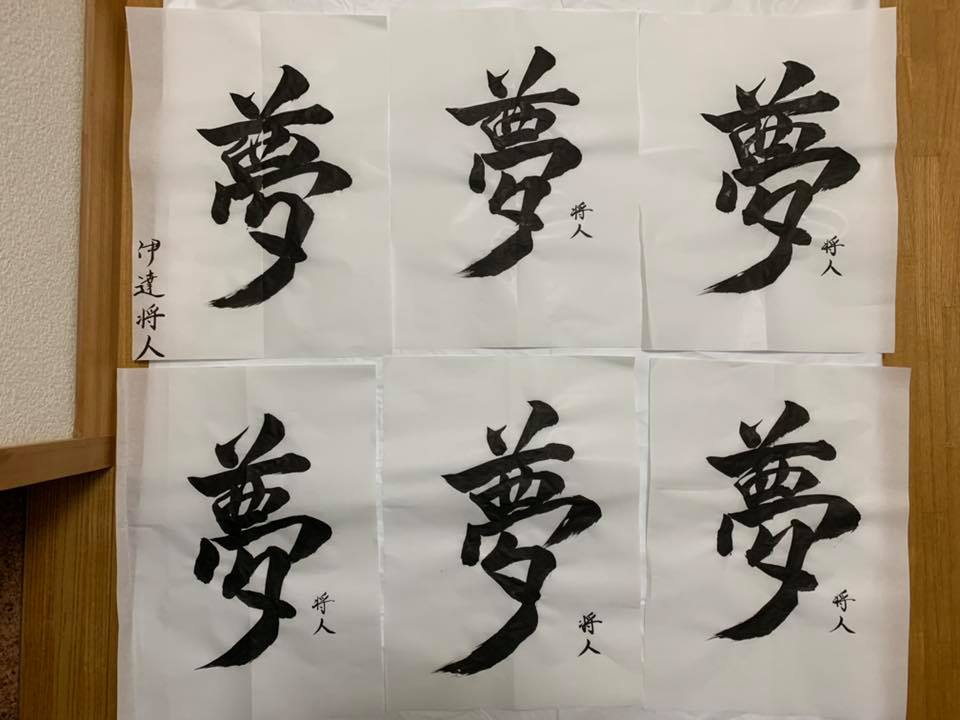 夢
伊達将人
夢
将人
夢
将人
夢
将人
夢
将人
夢
将人